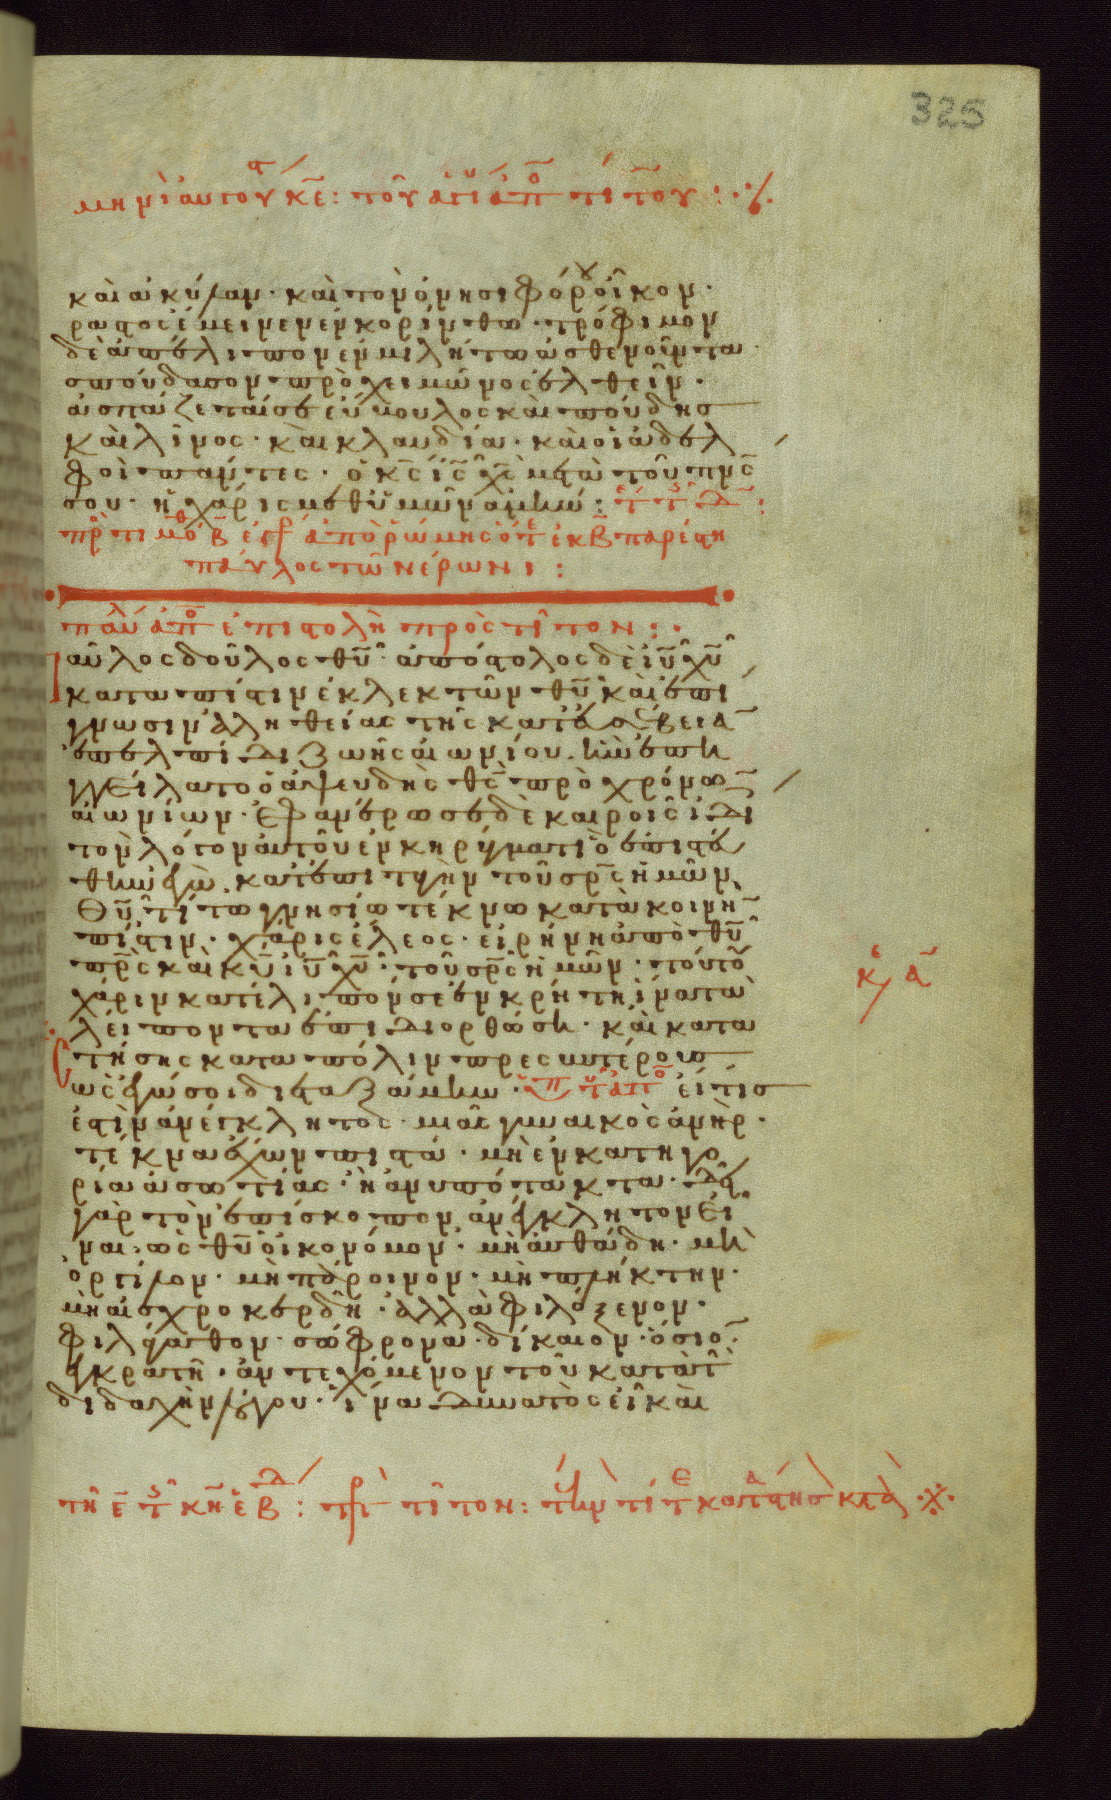 325
μηνὶ αὐγούστω κε: τοῦ ἁγίου ἀποστόλου τίτου:
καὶ ἀκύλαν· καὶ τὸν ὀνησιφόρου οἶκον·
ἔραστος ἔμεινεν ἐν κορίνθω· τρόφιμον
δὲ ἀπέλιπον ἐν μιλήτω ἀσθενοῦντα·
σπούδασον πρὸ χειμῶνος ἐλθεῖν·
ἀσπάζεταί σε εὔβουλος καὶ πούδης
καὶ λῖνος· καὶ κλαυδία· καὶ οἱ ἀδελ
φοὶ πάντες· ὁ κς ις χς μετὰ τοῦ πνς
σου· ἡ χάρις μεθ' ὑμῶν ἀμήν:
πρὸς τιμόθεον β ἐγράφη ἀπὸ ῥώμης ὅτε ἐκ β παρέστη
παῦλος τῶ νέρωνι:
παύλου ἀποστόλου ἐπιστολὴ πρὸς τίτον:
Παῦλος δοῦλος θυ· ἀπόστολος δὲ ιυ χυ
κατὰ πίστιν ἐκλεκτῶν θυ καὶ ἐπί
γνωσιν ἀληθείας τῆς κατ' εὐσέβειαν
ἐπ' ἐλπίδι ζωῆς αἰωνίου. ἣν ἐπη
γγείλατο ὁ ἀψευδὴς θς πρὸ χρόνων
αἰωνίων· ἐφανέρωσε δὲ καιροῖς ἰδί
τὸν λόγον αὐτοῦ ἐν κηρύγματι ὃ ἐπιστεύ
θην ἐγὼ. κατ' ἐπιταγὴν τοῦ σρς ἡμῶν
θυ· τίτω γνησίω τέκνω κατὰ κοινὴν
πίστιν· χάρις ἔλεος· εἰρήνη ἀπὸ θυ
πρς καὶ κυ ιυ χυ· τοῦ σρς ἡμῶν· τούτου
χάριν κατέλιπόν σε ἐν κρήτη ἵνα τὰ
λείποντα ἐπιδιορθώση· καὶ κατα
στήσης κατὰ πόλιν πρεσβυτέρους
ὡς ἐγώ σοι διεταξάμην· εἴ τις
ἐστὶν ἀνέγκλητος· μιᾶς γυναικὸς ἀνήρ·
τέκνα ἔχων πιστά· μὴ ἐν κατηγο
ρία ἀσωτίας· ἢ ἀνυπότακτα· δεῖ
γὰρ τὸν ἐπίσκοπον ἀνέγκλητον εἶ
ναι· ὡς θυ οἰκονόμον· μὴ αὐθάδη· μὴ
ὀργίλον· μὴ πάροινον· μὴ πλήκτην·
μὴ αἰσχροκερδῆ· ἀλλὰ φιλόξενον·
φιλάγαθον· σώφρονα· δίκαιον· ὅσιον·
ἐγκρατῆ· ἀντεχόμενον τοῦ κατὰ τὴν
διδαχὴν λόγου· ἵνα δυνατὸς εἶ καὶ